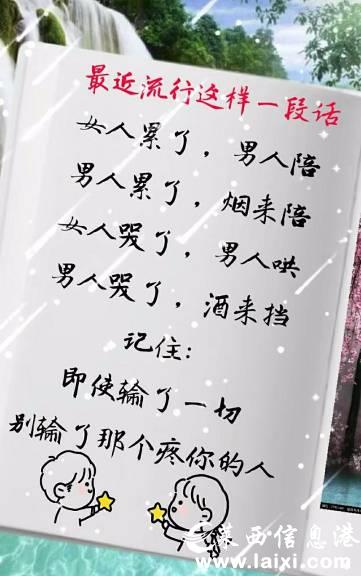 最近流行这样一段话
女人累了，男人陪
男人累了，烟来陪
女人哭了，男人哄
男人哭了，酒来挡
记住：
即使输了一切
别输了那个疼你的人
莱西信息港
www.laixi.com